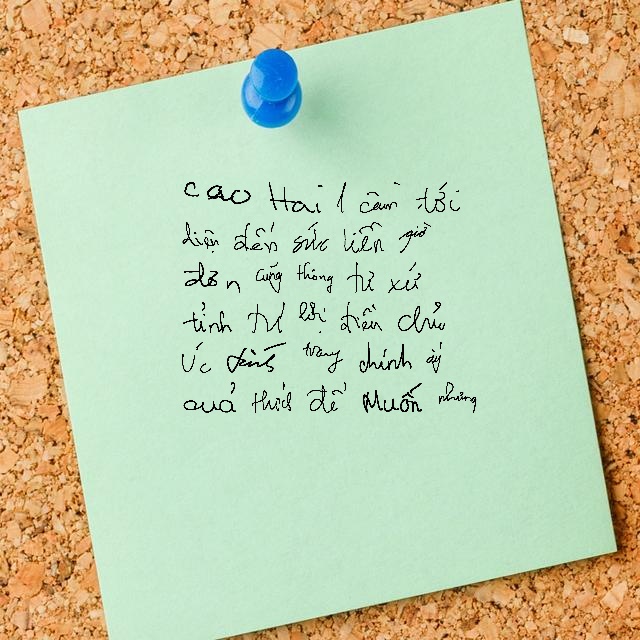 cao Hai 1 cần tới
diện đến sức liên giờ
đơn cũng thông từ xứ
tỉnh từ lời tiền chủ
Úc trọng chính ấy
quả thức để Muốn những